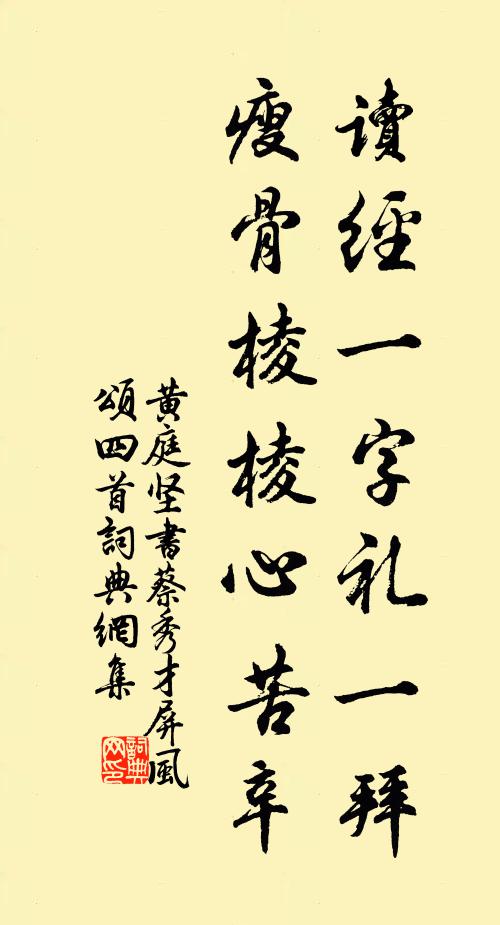 讀經一字礼一拜
瘦骨棱棱心苦辛
黄庭坚書蔡秀才屏風
頌四首詞典網集
詞典
网印